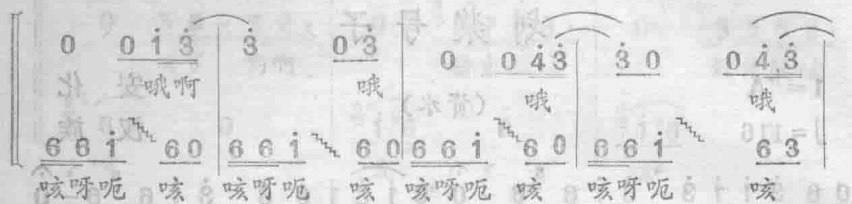 0 0 1̇ 3̇ | 3̇ 0 3̇ | 0 0 4̇ 3̇ | 3̇ 0 0 4̇ 3̇ |
哦啊 哦 哦 哦
6 6 1̇ 6 0 | 6 6 1̇ 6 0 | 6 6 1̇ 6 0 | 6 6 1̇ 6 3 |
咳呀呃 咳 咳呀呃 咳 咳呀呃 咳 咳呀呃 咳